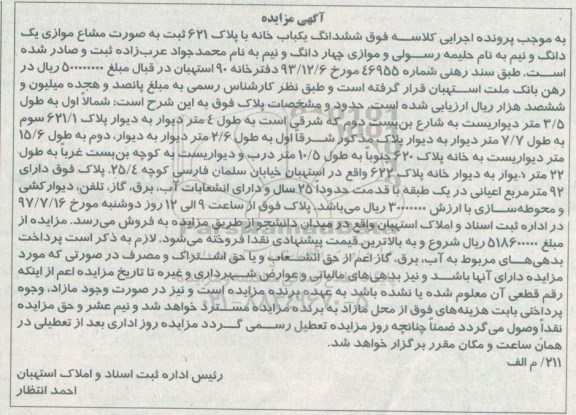 آگهی مزایده
به موجب پرونده اجرایی کلاسه فوق ششدانگ یکباب خانه با پلاک ۶۲۱ ثبت به صورت مشاع موازی یک
دانگ و نیم به نام حلیمه رسولی و موازی چهار دانگ و نیم به نام محمدجواد عرب‌زاده ثبت و صادر شده
است. طبق سند رهنی شماره ۴۶۹۵۵ مورخ ۹۳/۱۲/۶ دفترخانه ۹۰ استهبان در قبال مبلغ ۵۰۰۰۰۰۰۰۰ ریال در
رهن بانک ملت استهبان قرار گرفته است و طبق نظر کارشناس رسمی به مبلغ پانصد و هجده میلیون و
ششصد هزار ریال ارزیابی شده است. حدود و مشخصات پلاک فوق به این شرح است: شمالاً اول به طول
۳/۵ متر دیواریست به شارع بن‌بست دوم که شرقی است به طول ٤ متر دیوار به دیوار پلاک ۶۲۱/۱ سوم
به طول ۷/۷ متر دیوار به دیوار پلاک مذکور شرقاً اول به طول ۲/۶ متر دیوار به دیوار، دوم به طول ۱۵/۶
متر دیواریست به خانه پلاک ۶۲۰ جنوبا به طول ۱۰/۵ متر درب و دیواریست به کوچه بن‌بست غرباً به طول
۲۲ متر دیوار به دیوار خانه پلاک ۶۲۲ واقع در استهبان خیابان سلمان فارسی کوچه ۲۵/٤. پلاک فوق دارای
۹۲ مترمربع اعیانی در یک طبقه با قدمت حدوداً ۲۵ سال و دارای انشعابات آب، برق، گاز، تلفن، دیوارکشی
و محوطه‌سازی با ارزش ۳۰۰۰۰۰۰۰ ریال می‌باشد. پلاک فوق از ساعت ۹ الی ۱۲ روز دوشنبه مورخ ۹۷/۷/۱۶
در اداره ثبت اسناد و املاک استهبان واقع در میدان دانشجو از طریق مزایده به فروش می‌رسد. مزایده از
مبلغ ۵۱۸۶۰۰۰۰۰ ریال شروع و به بالاترین قیمت پیشنهادی نقدا فروخته می‌شود. لازم به ذکر است پرداخت
بدهی‌های مربوط به آب، برق، گاز اعم از حق انشعاب و یا حق اشتراک و مصرف در صورتی که مورد
مزایده دارای آنها باشد و نیز بدهی‌های مالیاتی و عوارض شهرداری و غیره تا تاریخ مزایده اعم از اینکه
رقم قطعی آن معلوم شده یا نشده باشد به عهده برنده مزایده است و نیز در صورت وجود مازاد، وجوه
پرداختی بابت هزینه‌های فوق از محل مازاد به برنده مزایده مسترد خواهد شد و نیم عشر و حق مزایده
نقداً وصول می‌گردد ضمناً چنانچه روز مزایده تعطیل رسمی گردد مزایده روز اداری بعد از تعطیلی در
همان ساعت و مکان مقرر برگزار خواهد شد.
۲۱۱/ م الف
رئیس اداره ثبت اسناد و املاک استهبان
احمد انتظار